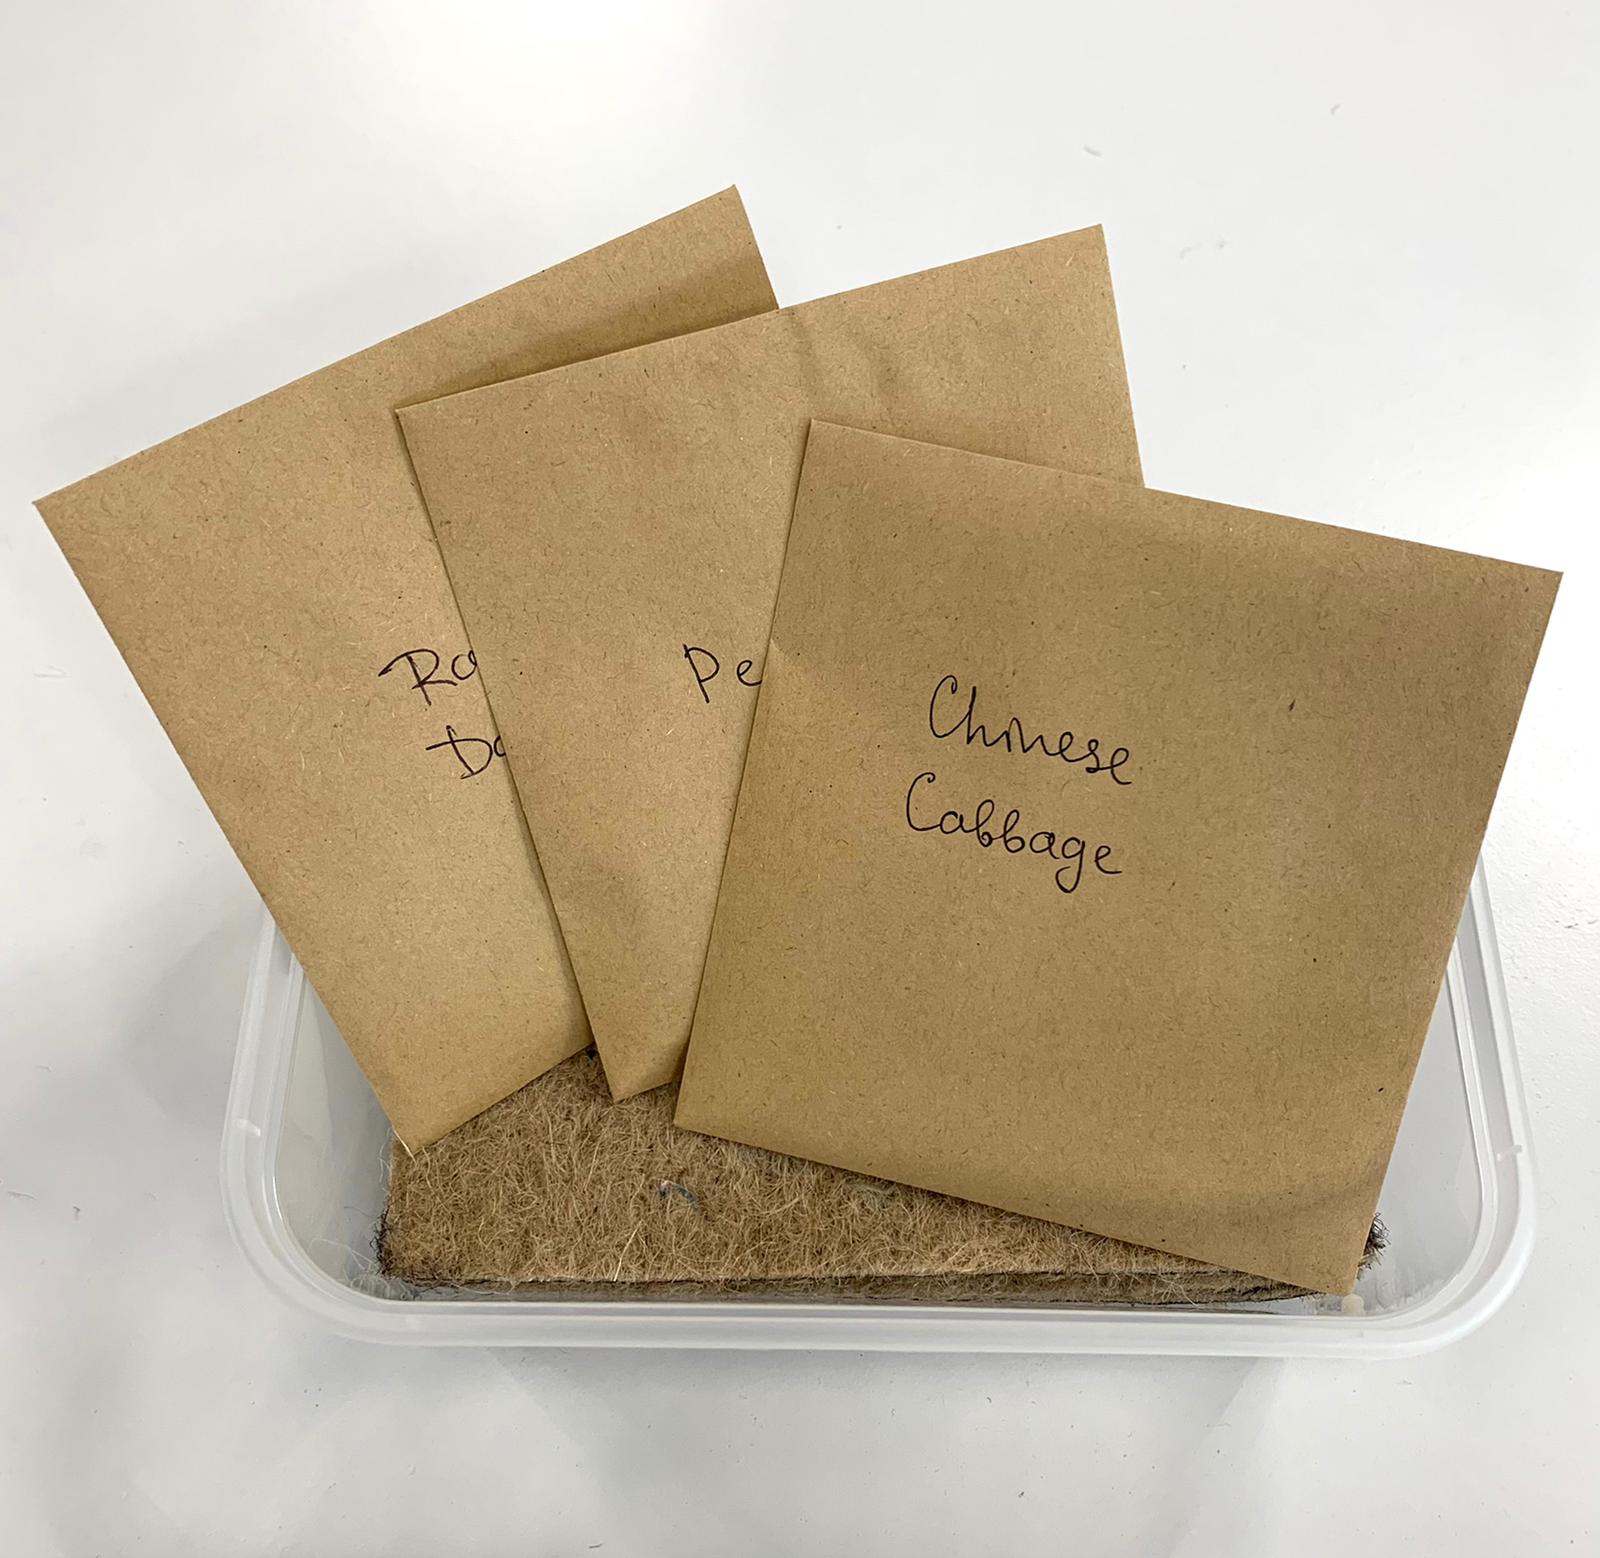 Ra
Da
Pe
Chinese
Cabbage